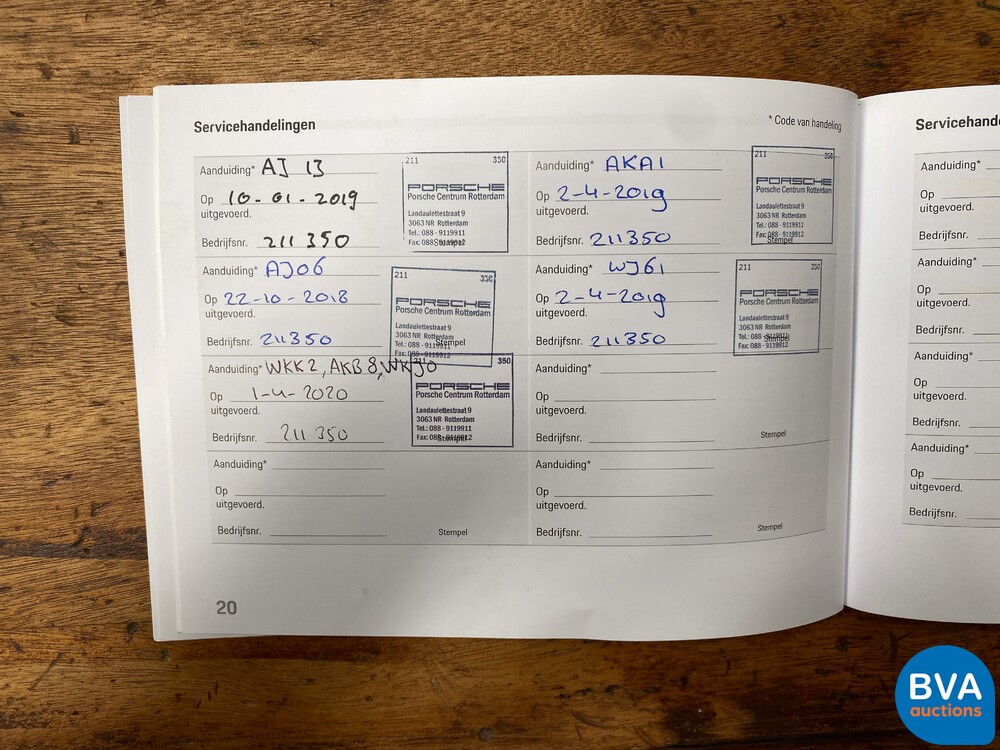 Servicehandelingen
* Code van handeling
Aanduiding* AJ 13
Op 10-01-2019
uitgevoerd.
Bedrijfsnr. 211350
211 350
PORSCHE
Porsche Centrum Rotterdam
Landaulettestraat 9
3063 NR Rotterdam
Tel.: 088 - 9119911
Fax: 088 - 9119912
Stempel
Aanduiding* AKA1
Op 2-4-2019
uitgevoerd.
Bedrijfsnr. 211350
211 350
PORSCHE
Porsche Centrum Rotterdam
Landaulettestraat 9
3063 NR Rotterdam
Tel.: 088 - 9119911
Fax: 088 - 9119912
Stempel
Aanduiding* AJ06
Op 22-10-2018
uitgevoerd.
Bedrijfsnr. 211350
211 350
PORSCHE
Porsche Centrum Rotterdam
Landaulettestraat 9
3063 NR Rotterdam
Tel.: 088 - 9119911
Fax: 088 - 9119912
Stempel
Aanduiding* WJ61
Op 2-4-2019
uitgevoerd.
Bedrijfsnr. 211350
211 350
PORSCHE
Porsche Centrum Rotterdam
Landaulettestraat 9
3063 NR Rotterdam
Tel.: 088 - 9119911
Fax: 088 - 9119912
Stempel
Aanduiding* WKK2, AKB8, WKJ0
Op 1-4-2020
uitgevoerd.
Bedrijfsnr. 211350
211 350
PORSCHE
Porsche Centrum Rotterdam
Landaulettestraat 9
3063 NR Rotterdam
Tel.: 088 - 9119911
Fax: 088 - 9119912
Stempel
Aanduiding*
Op
uitgevoerd.
Bedrijfsnr.
Stempel
Aanduiding*
Op
uitgevoerd.
Bedrijfsnr.
Stempel
Aanduiding*
Op
uitgevoerd.
Bedrijfsnr.
Stempel
20
Aanduiding*
Op
uitgevoerd.
Bedrijfsnr.
Aanduiding*
Op
uitgevoerd.
Bedrijfsnr.
Aanduiding*
Op
uitgevoerd.
Bedrijfsnr.
Aanduiding*
Op
uitgevoerd.
Bedrijfsnr.
BVA
auctions